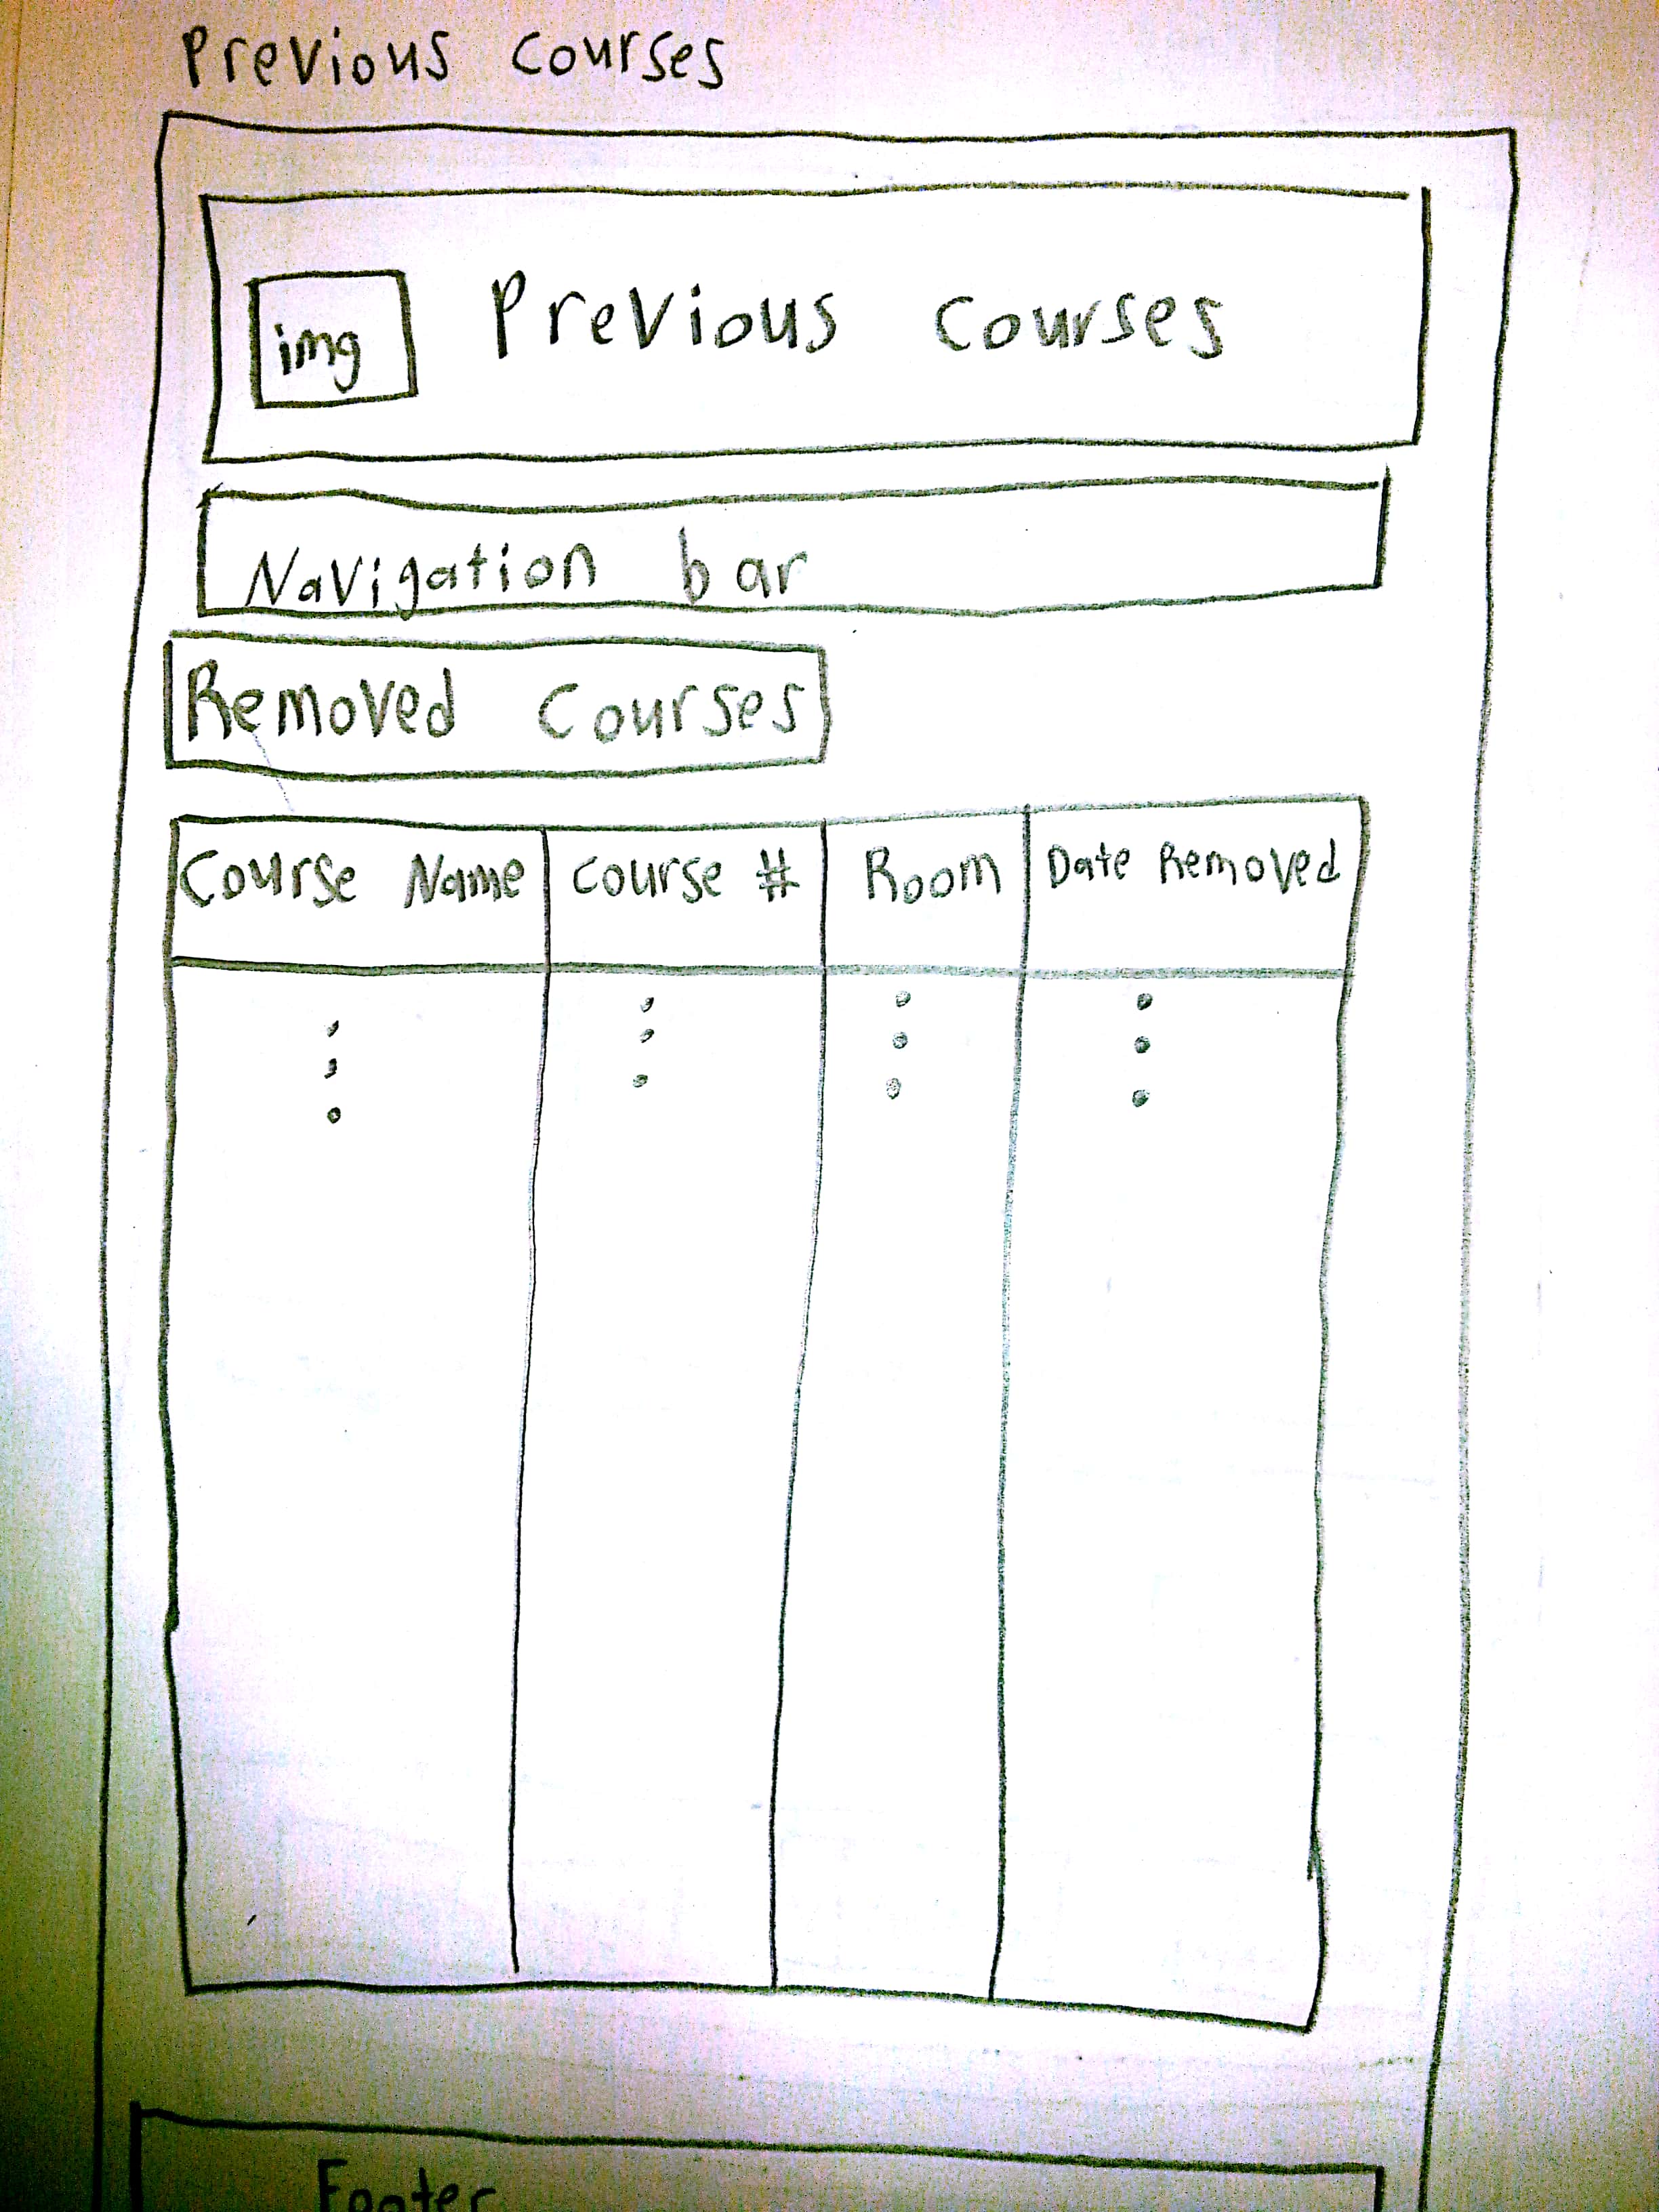 Previous Courses
img Previous Courses
Navigation bar
Removed Courses
Course Name Course # Room Date Removed
Footer